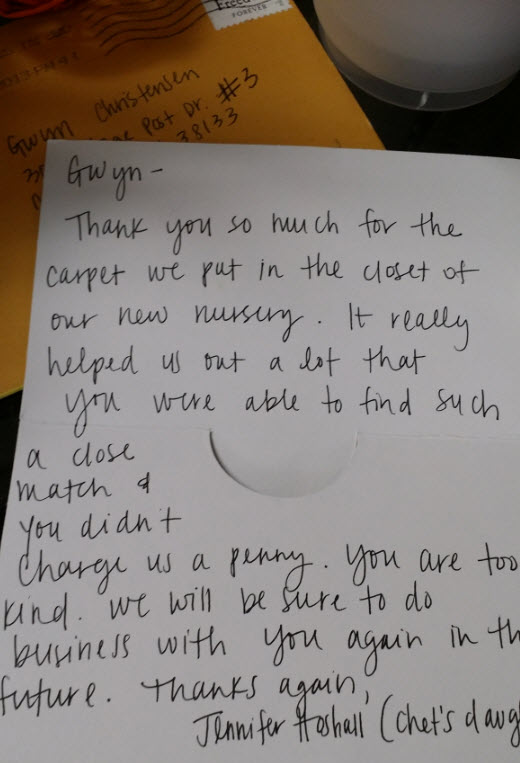 FOREVER
Gwyn Christensen
Post Dr. #3
38133
Gwyn -
Thank you so much for the
carpet we put in the closet of
our new nursery. It really
helped us out a lot that
you were able to find such
a close
match &
you didn't
charge us a penny. You are too
kind. We will be sure to do
business with you again in th
future. Thanks again,
Jennifer Hoshall (Chet's daug